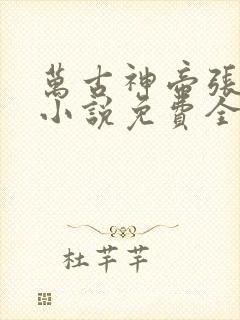 萬古神帝張
小說免費全
杜芊芊